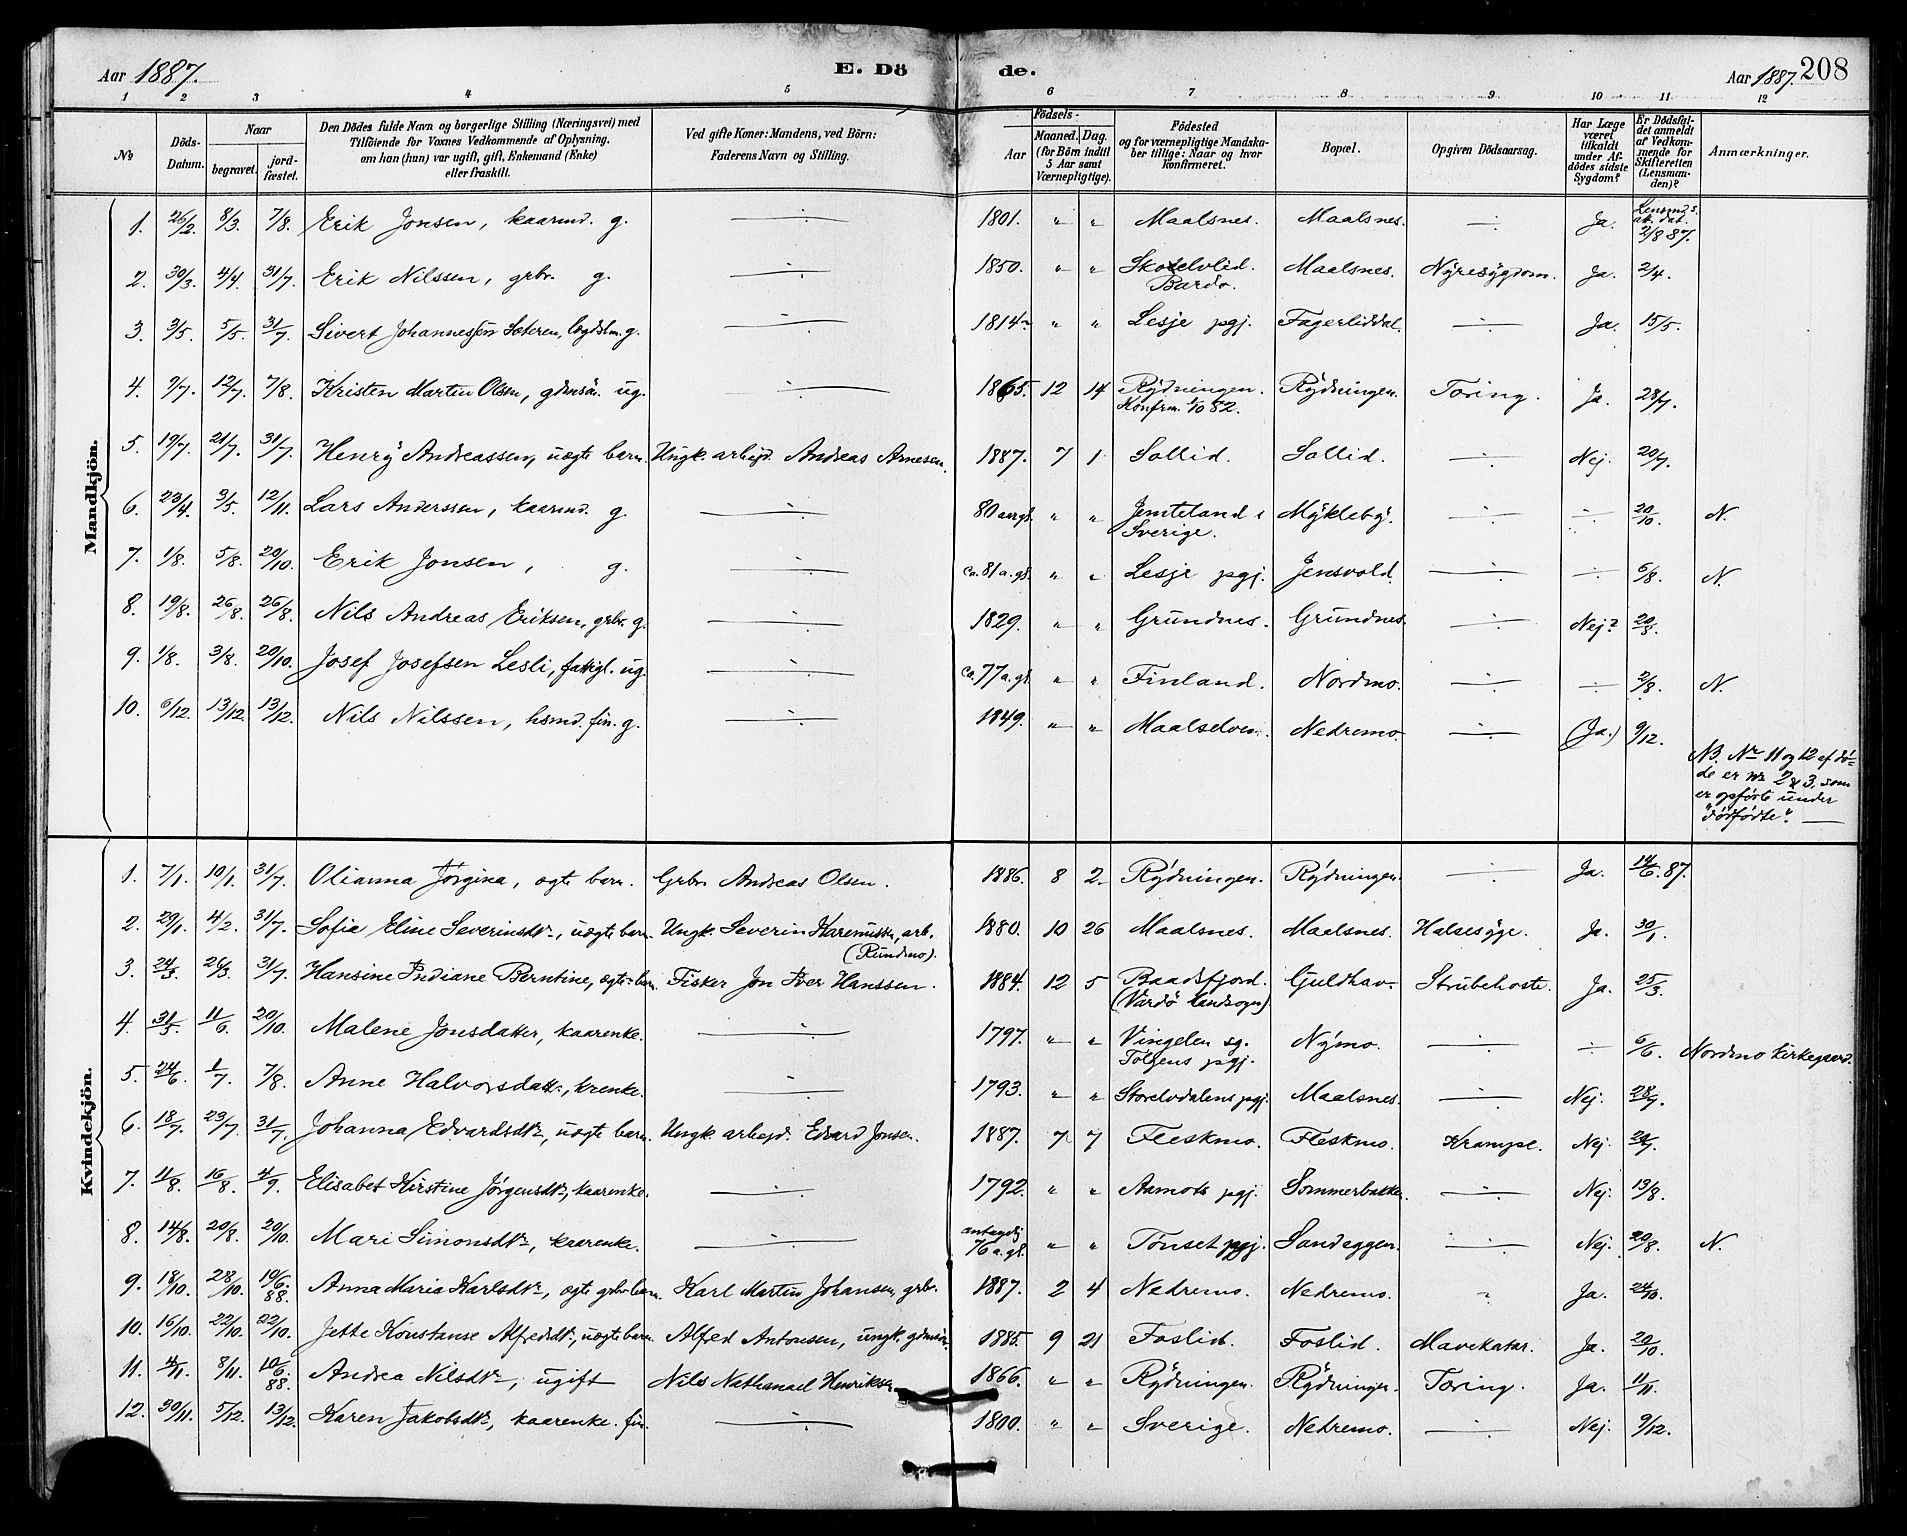 Aar 1887. E. Dö de. Aar 1887. 208
1 2 3 4 5 6 7 8 9 10 11 12
№ Döds-Datum. Naar begravet. jord-fæstet. Den Dödes fulde Navn og borgerlige Stilling (Næringsvei) med Tilföiende for Voxnes Vedkommende af Oplysning, om han (hun) var ugift, gift, Enkemand (Enke) eller fraskilt. Ved gifte Koner: Mandens, ved Börn: Faderens Navn og Stilling. Födsels- Aar Maaned. Dag. (for Börn indtil 5 Aar samt Værnepligtige). Födested og for værnepligtige Mandskaber tillige: Naar og hvor konfirmeret. Bopæl. Opgiven Dödsaarsag. Har Læge været tilkaldt under Afdödes sidste Sygdom? Er Dödsfaldet anmeldt af Vedkommende for Skifteretten (Lensmanden)? Anmærkninger.
Mandkjön.
1. 26/2 8/3. 7/8. Erik Jonsen, kaarmd. g. —:— 1801. " " Maalsnes. Maalsnes. —:— Ja. Lensmds. att. dat. 2/8 87.
2. 30/3. 4/4. 31/7. Erik Nilssen, grbr. g. —:— 1850. " " Skotelvlid. Bardo. Maalsnes. Nyresygdom. Ja. 2/4.
3. 3/5. 5/5. 31/7. Sivert Johannessen Sæteren, lægdslm. g. —:— 1814. " " Lesje pgj. Fagerliddal. —:— Ja. 15/5.
4. 9/7. 12/7. 7/8. Kristen Martin Olsen, gdmsön. ug. —:— 1865. 12 14 Rydningen. Konfrm. 1/10 82. Rydningen. Tæring. Ja. 28/7.
5. 19/7. 21/7. 31/7. Henry Andreassen, uægte barn. Ungk. arbejd. Andreas Arnesen. 1887. 7 1 Sollid. Sollid. —:— Nej. 20/7.
6. 23/4. 3/5. 12/11. Lars Anderssen, kaarmd. g. —:— 80 aar gl. " " Jemteland i Sverige. Mykleby. —:— —:— 20/10. N.
7. 1/8. 5/8. 20/10. Erik Jonsen, g. —:— ca. 81 a. gl. " " Lesje pgj. Jensvold. —:— —:— 6/8. N.
8. 19/8. 26/8. 26/8. Nils Andreas Eriksen, grbr. g. —:— 1829. " " Grundnes. Grundnes. —:— Nej? 20/8.
9. 1/8. 3/8. 20/10. Josef Josefsen Lesli, fattigl. ug. —:— ca. 77 a. gl. " " Finland. Nordmo. —:— —:— 2/8. N.
10. 6/12. 13/12. 13/12. Nils Nilssen, hsmd. fin. g. —:— 1849. " " Maalselven. Nedremo. —:— (Ja.) 9/12.
NB. Nr 11 og 12 af dö-
de er nr 2 & 3, som
er opførte under
"dødfødte". —
Kvindekjön.
1. 7/1. 10/1. 31/7. Olianna Jørgina, ægte barn. Grbr. Andreas Olsen. 1886. 8 2. Rydningen. Rydningen. —:— Ja. 14/6. 87.
2. 29/1. 4/2. 31/7. Sofie Eline Severinsdtr., uægte barn. Ungk. Severin Karenussen, arb. (Rundmo). 1880. 10 26 Maalsnes. Maalsnes. Halsesyge. Ja. 30/1.
3. 24/3. 26/3. 31/7. Hansine Indiane Berntine, ægte barn. Fisker Jon Iver Hanssen. 1884. 12 5 Baadsfjord. (Vardö landsogn) Guldhav. Strubehoste. Ja. 25/3.
4. 31/5. 11/6. 20/10. Malene Jonsdatter, kaarenke. —:— 1797. " " Vingelen sg. Tolgens pgj. Nymo. —:— —:— 6/6. Nordmo kirkegaard.
5. 24/6. 1/7. 7/8. Anne Halvorsdatt., krenke. —:— 1793. " " Storelvdalens pgj. Maalsnes. —:— Nej. 28/7.
6. 18/7. 23/7. 31/7. Johanna Edvardsdtr., uægte barn. Ungk. arbejd. Edvard Jonsen. 1887. 7 7 Fleskmo. Fleskmo. Krampe. Nej. 24/7.
7. 11/8. 16/8. 4/9. Elisabet Kirstine Jørgensdtr., kaarenke. —:— 1792. " " Aamots pgj. Sommerbakken. —:— Nej. 13/8.
8. 14/8. 20/8. 20/10. Mari Simonsdtr., kaarenke. —:— antagelig 76 a. gl. " " Tönset pgj. Sandeggen. —:— Nej. 20/8. N.
9. 18/10. 28/10. 10/6. 88. Anna Maria Karlsdtr., ægte grbr. barn. Karl Martin Johansen, grbr. 1887. 2 4 Nedremo. Nedremo. " Ja. 24/10.
10. 16/10. 22/10. 22/10. Jette Konstanse Alfredsdtr., uægte barn. Alfred Antonsen, ungk. gdmsön. 1885. 9 21 Foslid. Foslid. Mavekatar. Ja. 20/10.
11. 4/11. 8/11. 10/6. 88. Andrea Nilsdtr., ugift Nils Nathanael Henriksen 1866. " " Rydningen. Rydningen. Tæring. Ja. 11/11.
12. 30/11. 5/12. 13/12. Karen Jakobsdtr., kaarenke. fin. —:— 1800. " " Sverige. Nedremo. —:— Nej. 9/12.